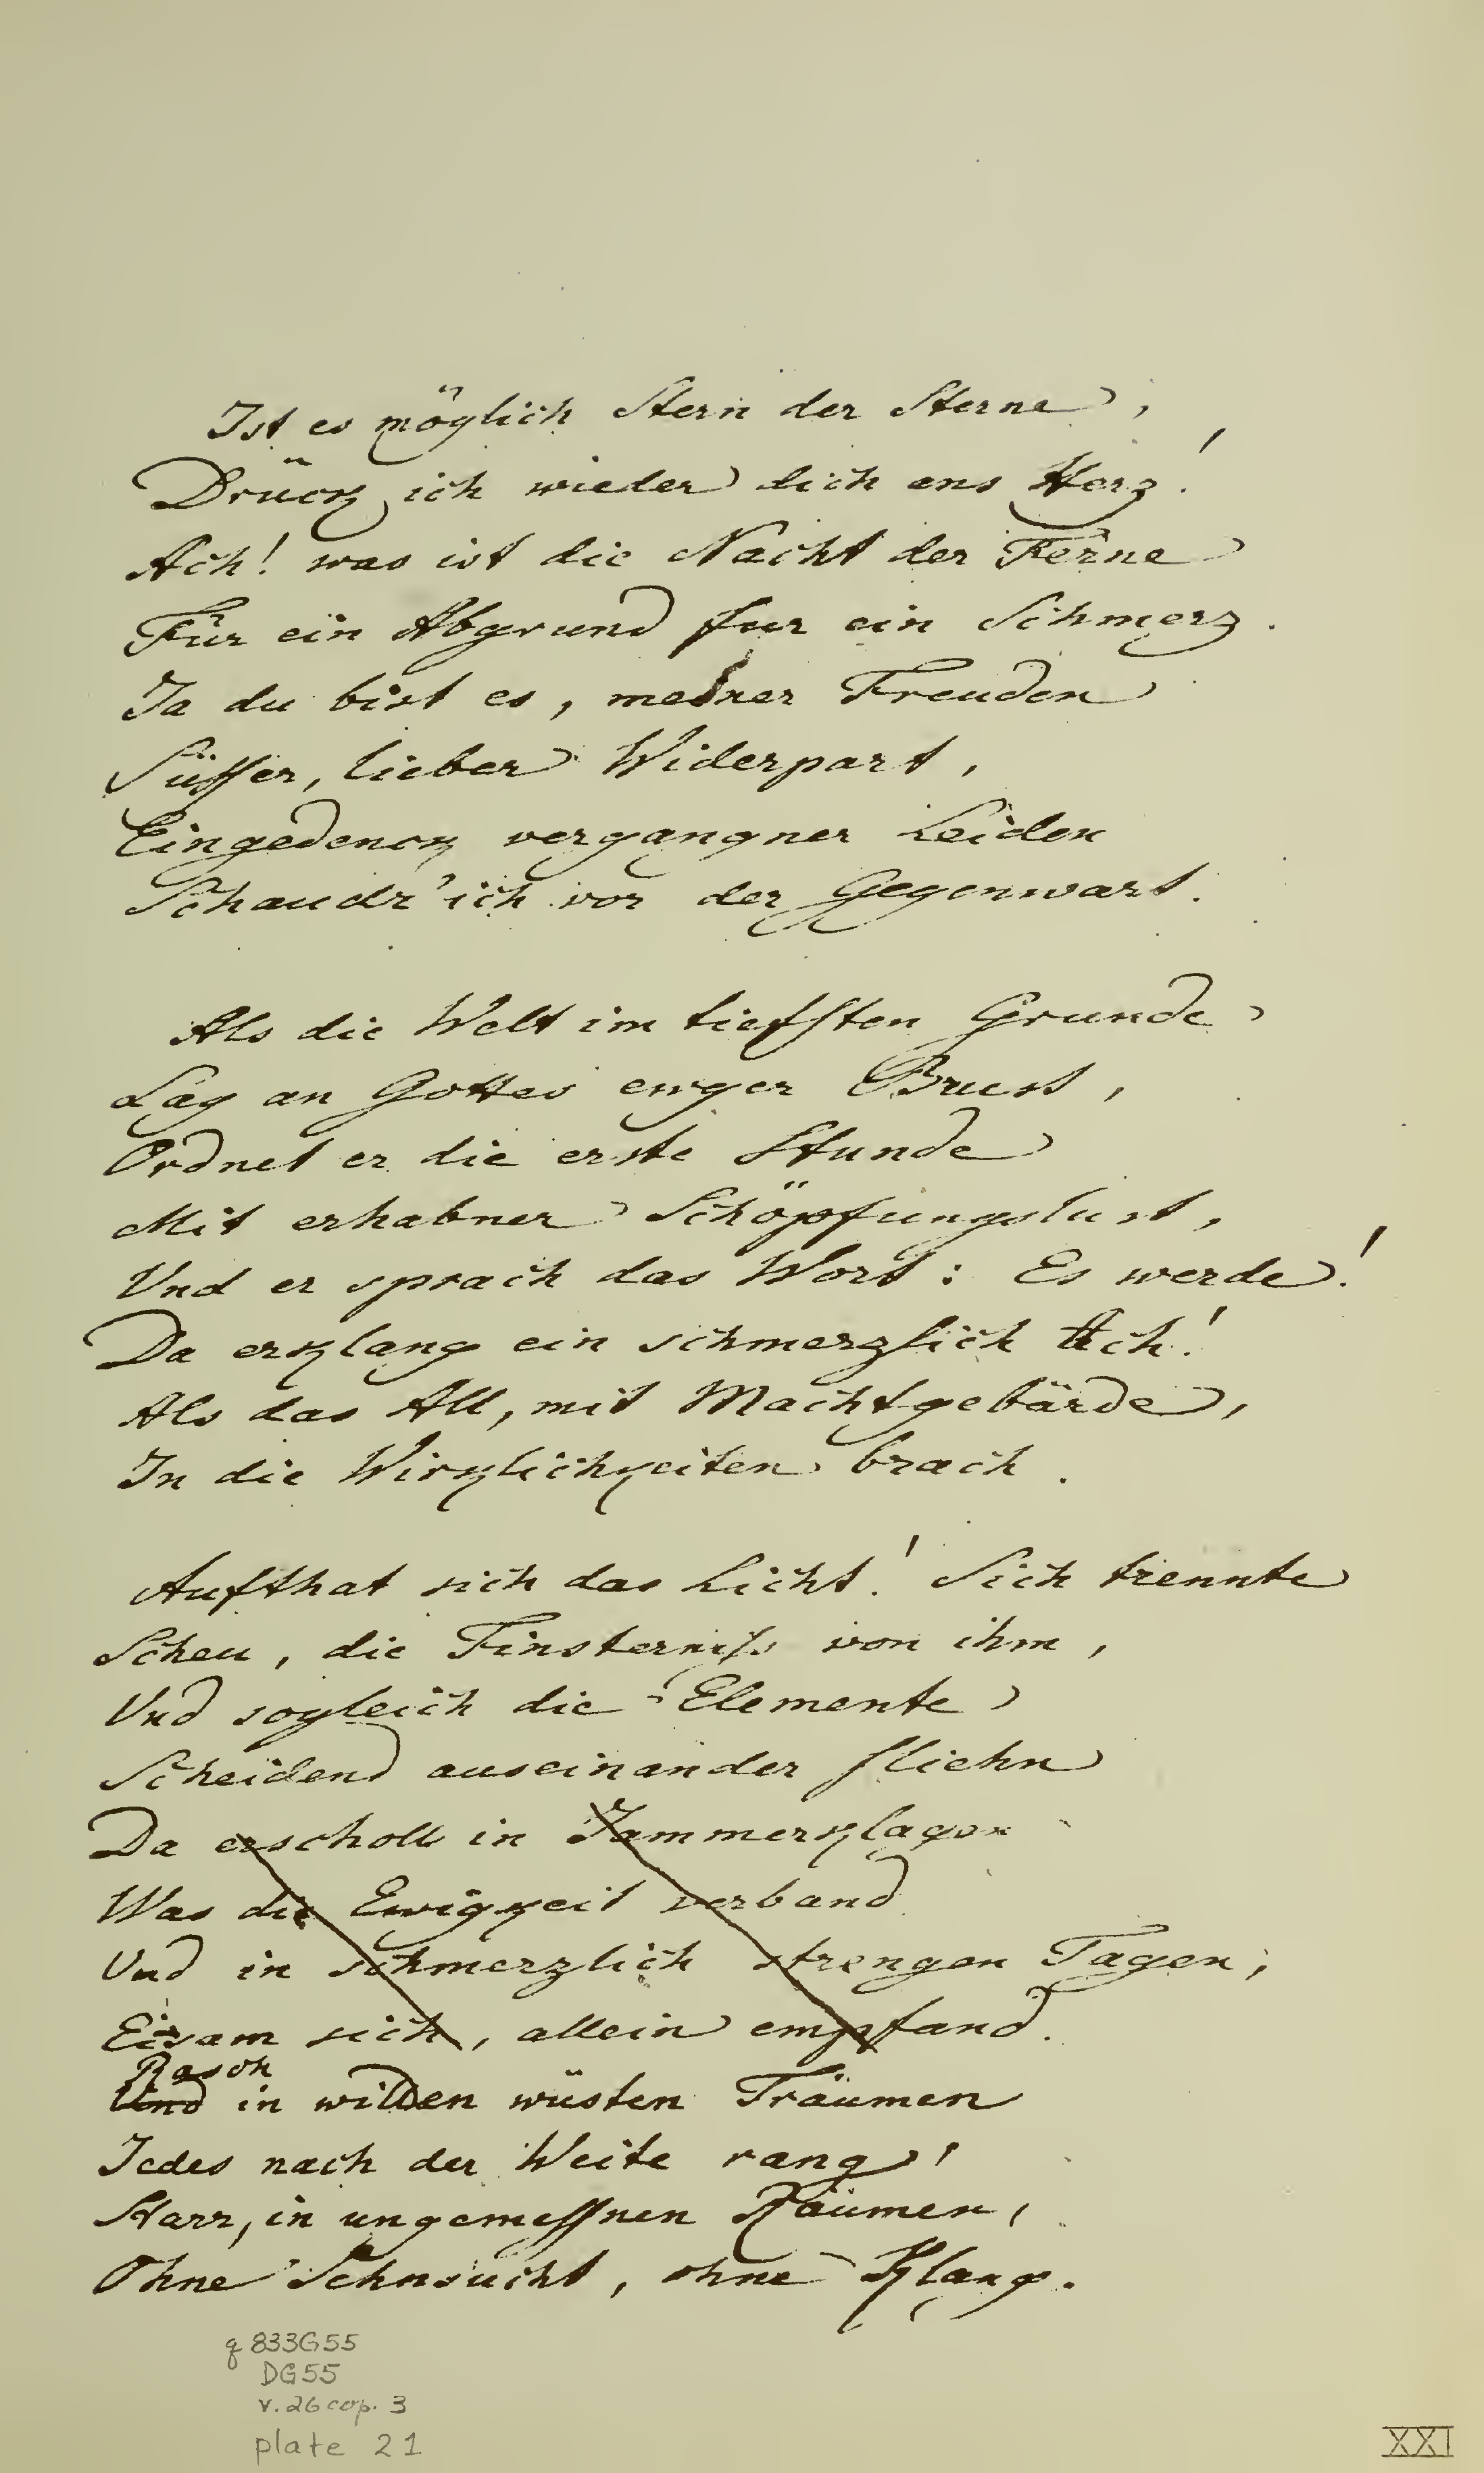 Ist es möglich Stern der Sterne,
Drück ich wieder dich ans Herz!
Ach! was ist die Nacht der Ferne
Für ein Abgrund fur ein Schmerz.
Ja du bist es, meiner Freuden
Süsser, lieber Widerpart,
Eingedenck vergangner Leiden
Schaudr' ich vor der Gegenwart.
Als die Welt im tiefsten Grunde
Lag an Gottes ewger Brust,
Ordnet er die erste Stunde
Mit erhabner Schöpfungslust,
Und er sprach das Wort: Es werde!
Da erklang ein schmerzlich Ach!
Als das All, mit Machtgebärde,
In die Wirklichkeiten brach.
Aufthat sich das Licht! Sich trennte
Scheu, die Finsterniss von ihm,
Und sogleich die Elemente
Scheidend auseinander fliehn
Da erscholl in Jammerklagen
Was die Ewigkeit verband
Und in schmerzlich strengen Tagen,
Einsam sich, allein empfand.
Rasch
Und in wilden wüsten Träumen
Jedes nach der Weite rang,
Starr, in ungemessnen Räumen,
Ohne Sehnsucht, ohne Klang.
q833G55
DG55
v.26 cop. 3
plate 21
XXI